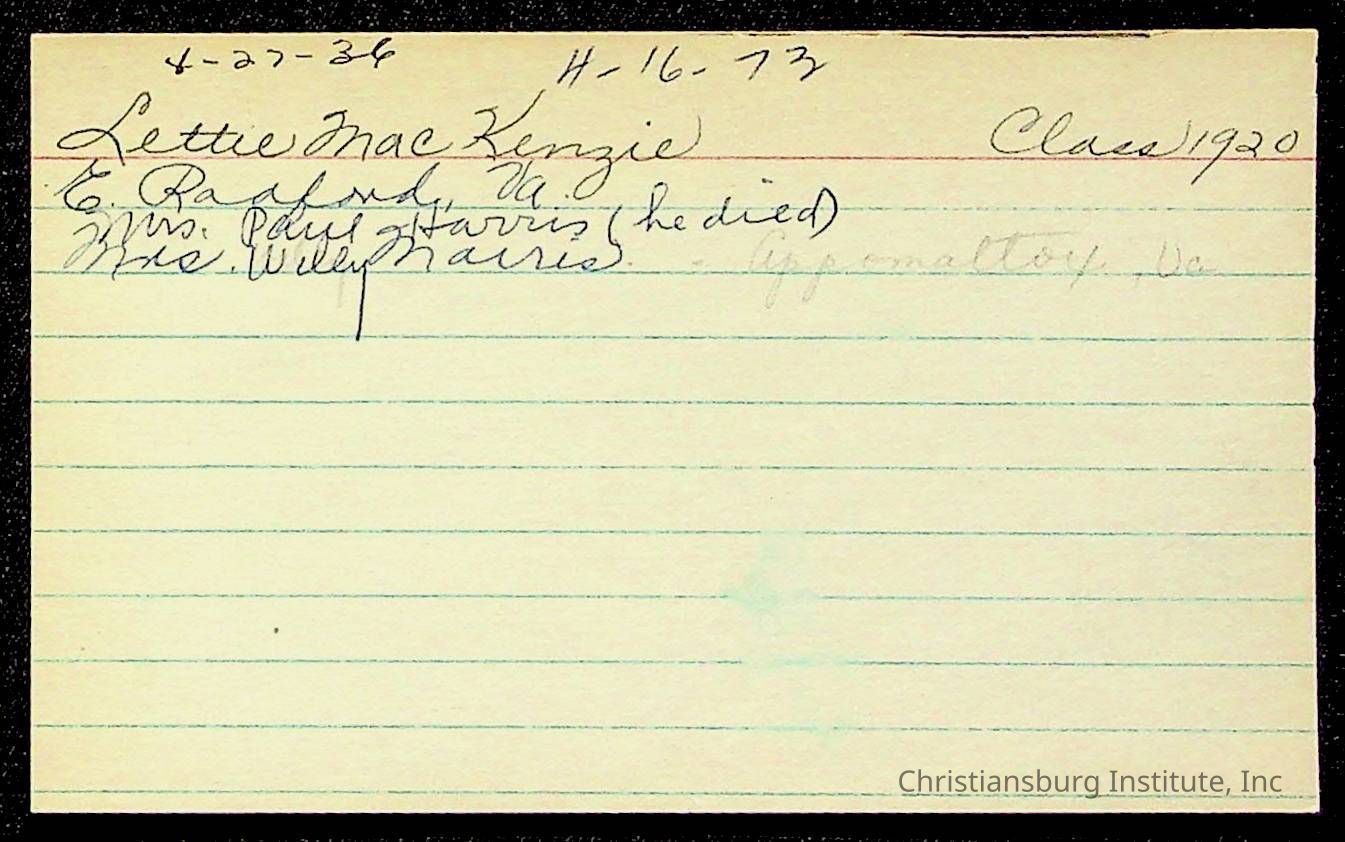 4-27-36 4-16-73
Lettie MacKenzie Class 1920
E. Radford, Va.
Mrs. Paul Harris (he died)
Mrs. Willy Morris - Appomattox, Va
Christiansburg Institute, Inc